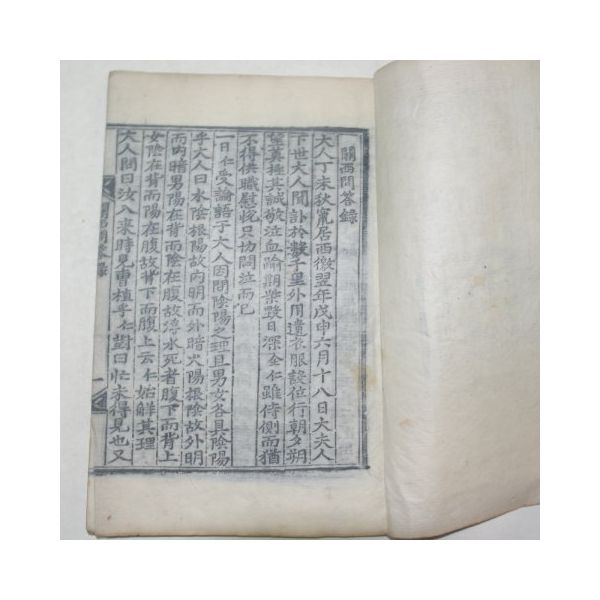 關西問答錄
大人丁未秋竄居西徼翌年戊申六月十八日大夫人
下世大人聞訃於數千里外用遺衣服設位行朝夕朔
望奠極其誠敬泣血踰期柴毁日深全仁雖侍側而猶
不得供職慰悅只切悶泣而已
一日仁受論語于大人因問陰陽之理且男女各具陰陽
乎大人曰水陰根陽故內明而外暗火陽根陰故外明
而內暗男陽在背而陰在腹故渰水死者腹下而背上
女陰在背而陽在腹故背下而腹上云仁始解其理
大人問曰汝入來時見曺植乎仁對曰忙未得見也又
關西問答錄
一